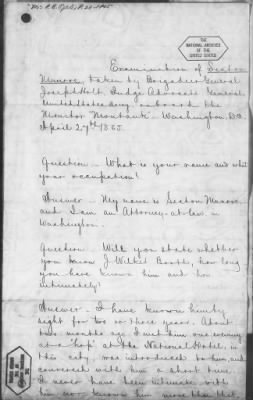 THE
NATIONAL ARCHIVES
OF THE
UNITED STATES
Examination of Seaton
Munroe, taken by Brigadier General
Joseph Holt, Judge Advocate General
United States Army on board the
Monitor "Montauk" - Washington, D.C.
April 27th 1865.
Question - What is your name and what
your occupation?
Answer - My name is Seaton Munroe
and I am an Attorney-at-law in
Washington.
Question Will you state whether
you knew J. Wilkes Booth, how long
you have known him and how
intimately?
Answer - I have known him by
sight for two or three years. About
two months ago I met him one evening
at a "hop" at the National Hotel, in
this city, was introduced to him, and
conversed with him a short time.
I never have been intimate with
him nor known him more than that.